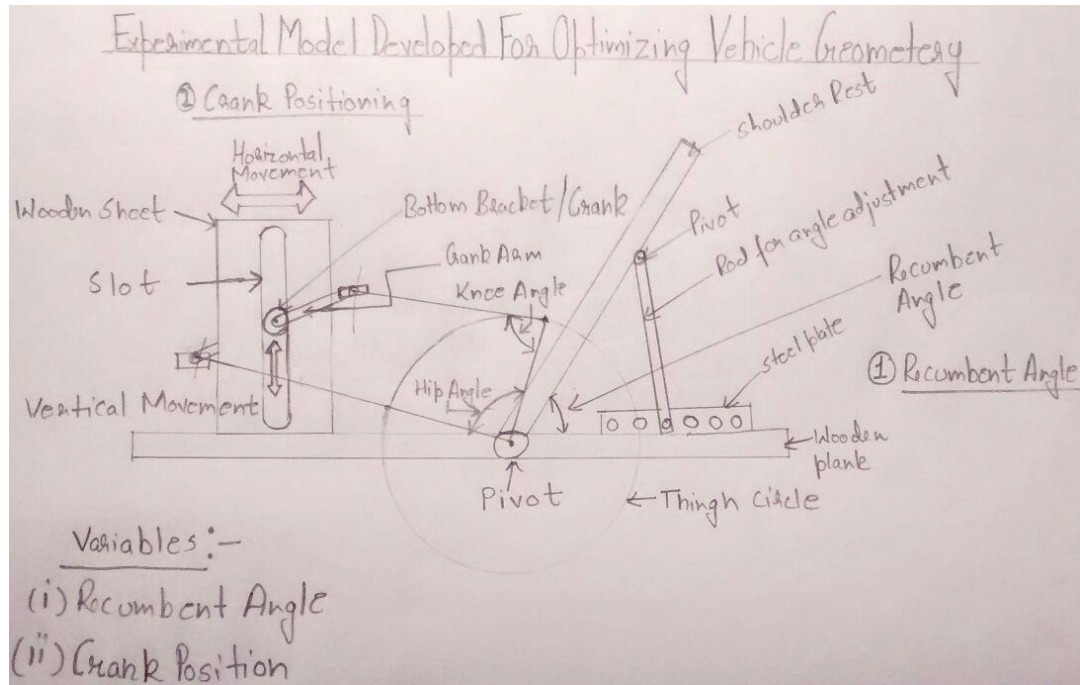 Experimental Model Developed For Optimizing Vehicle Geometery
② Crank Positioning
Horizontal
Movement
Wooden Sheet
Slot
Vertical Movement
Bottom Bracket/Crank
Crank Arm
Knee Angle
Hip Angle
Shoulder Rest
Pivot
Rod for angle adjustment
Recumbent
Angle
steel plate
① Recumbent Angle
Wooden
plank
Pivot
Thingh circle
Variables:-
(i) Recumbent Angle
(ii) Crank Position